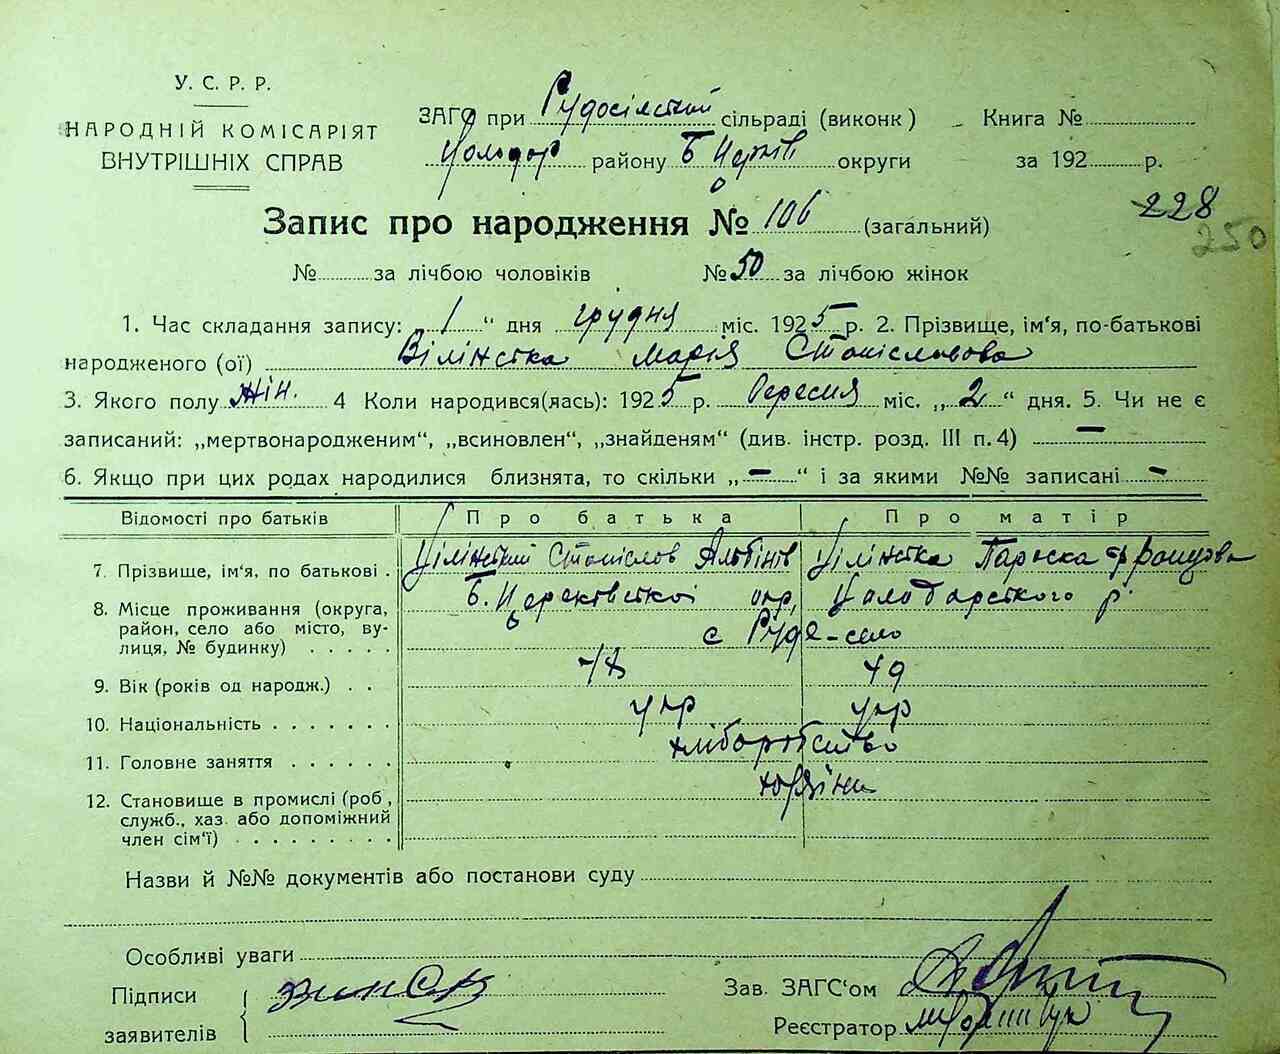 У. С. Р. Р.
НАРОДНІЙ КОМІСАРІЯТ
ВНУТРІШНІХ СПРАВ
ЗАГС при Рудосільській сільраді (виконк)
Володар району Б Церків округи
Книга №
за 192 р.
228
250
Запис про народження № 106 (загальний)
№ за лічбою чоловіків № 50 за лічбою жінок
1. Час складання запису: 1 “ дня грудня міс. 1925 р. 2. Прізвище, ім‘я, по-батькові
народженого (ої) Вілінська Марія Станіславова
3. Якого полу жін. 4 Коли народився(лась): 1925 р. Вересня міс. „ 2 “ дня. 5. Чи не є
записаний: „мертвонародженим“, „всиновлен“, „знайденям“ (див. інстр. розд. III п. 4) —
6. Якщо при цих родах народилися близнята, то скільки „ — “ і за якими №№ записані -
Відомості про батьків Про батька Про матір
7. Прізвище, ім‘я, по батькові . Вілінський Станіслав Альбінів Вілінська Параска Францова
8. Місце проживання (округа, Б. Церковської окр, Володарського р.
район, село або місто, ву- с Руде-село
лиця, № будинку) . . . . .
9. Вік (років од народж.) . . 49
10. Національність . . . . . . . укр укр
11. Головне заняття . . . . . . хліборобство
12. Становище в промислі (роб., хазяїни
служб., хаз. або допоміжний
член сім‘ї) . . . . . . . . .
Назви й №№ документів або постанови суду
Особливі уваги
Підписи
заявителів
Зав. ЗАГС‘ом
Реєстратор